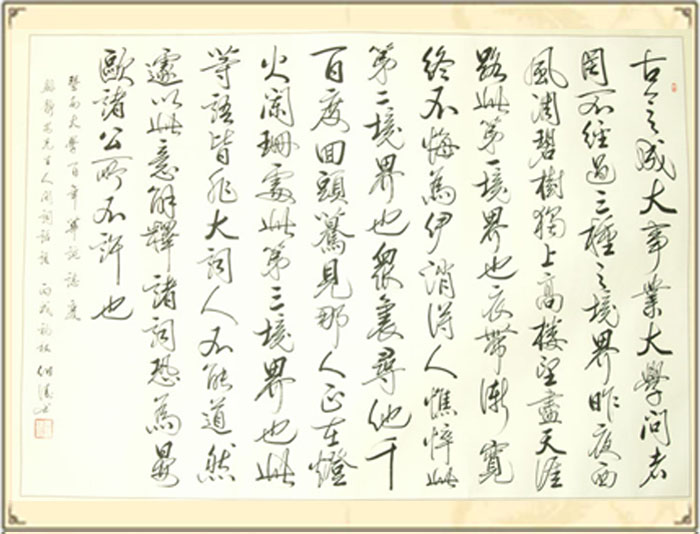 古之成大事業大學問者
罔不經過三種之境界昨夜西
風凋碧樹獨上高樓望盡天涯
路此第一境界也衣帶漸寬
終不悔為伊消得人憔悴此
第二境界也眾裏尋他千
百度回頭驀見那人正在燈
火闌珊處此第三境界也此
等語皆非大詞人不能道然
遽以此意解釋諸詞恐為晏
歐諸公所不許也
暨南大學百年華誕誌慶
錄靜安先生人間詞話語 丙戌